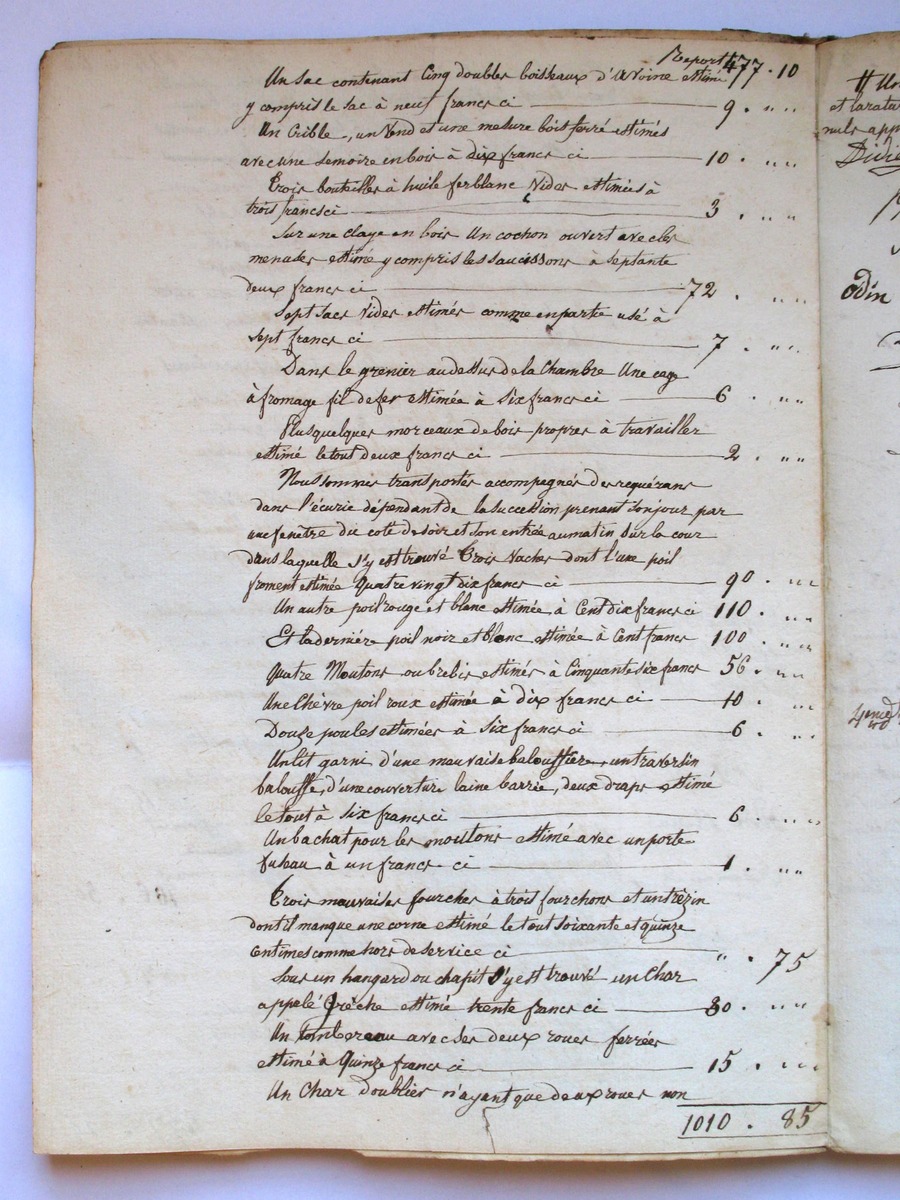 Report 477 . 10
Un sac contenant Cinq doubles boisseaux d'avoine estimé
y compris le sac à neuf francs ci 9 . " "
Un Crible, un Vend et une mesure bois ferré estimés
avec une semoire en bois à dix francs ci 10 . " "
Trois bouteilles à huile ferblanc Vides estimées à
trois francs ci 3 . " "
Sur une claye en bois Un cochon ouvert avec les
menuses estimé y compris les saucissons à septante
deux francs ci 72 . " "
Sept sacs Vides estimés comme en partie usé à
sept francs ci 7 . " "
Dans le grenier au dessus de la Chambre Une cage
à fromage fil de fer estimée à six francs ci 6 . " "
Plus quelques morceaux de bois propres à travailler
estimé le tout deux francs ci 2 . " "
Nous sommes transportés accompagnés des requérans
dans l'écurie dépendant de la succession prenant son jour par
une fenêtre du coté de soir et son entrée au matin sur la cour
dans laquelle s'y est trouvé Trois Vaches dont l'une poil
froment estimée Quatre vingt dix francs ci 90 . " "
Un autre poil rouge et blanc estimée à Cent dix francs ci 110 . " "
Et la derniére poil noir et blanc estimée à Cent francs 100 . " "
Quatre Moutons ou brebis estimés à Cinquante six francs 56 . " "
Une Chèvre poil roux estimée à dix francs ci 10 . " "
Douze poules estimées à six francs ci 6 . " "
Un lit garni d'une mauvaise balouffiere, un traversin
balouffe, d'une couverture laine barrée, deux draps estimé
le tout à six francs ci 6 . " "
Un bachat pour les moutons estimé avec un porte
fuseau à un francs ci 1 . " "
Trois mauvaises fourches à trois fourchons et un trézin
dont il manque une corne estimé le tout soixante et quinze
Centimes comme hors de service ci " . 75
Sous un hangard ou chapit s'y est trouvé un Char
appelé Crèche estimé trente francs ci 30 . " "
Un Tombereau avec ses deux roues ferrées
estimé à Quinze francs ci 15 . " "
Un Char doublier n'ayant que deux roues non
1010 . 85
et
nuls
odin